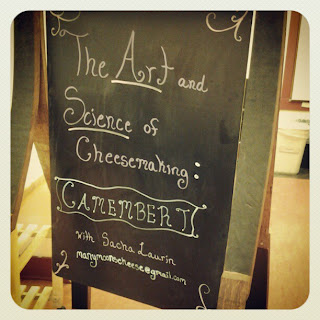 The Art and
Science of
Cheesemaking:
CAMEMBERT
with Sacha Laurin
manymoonscheese@gmail.com